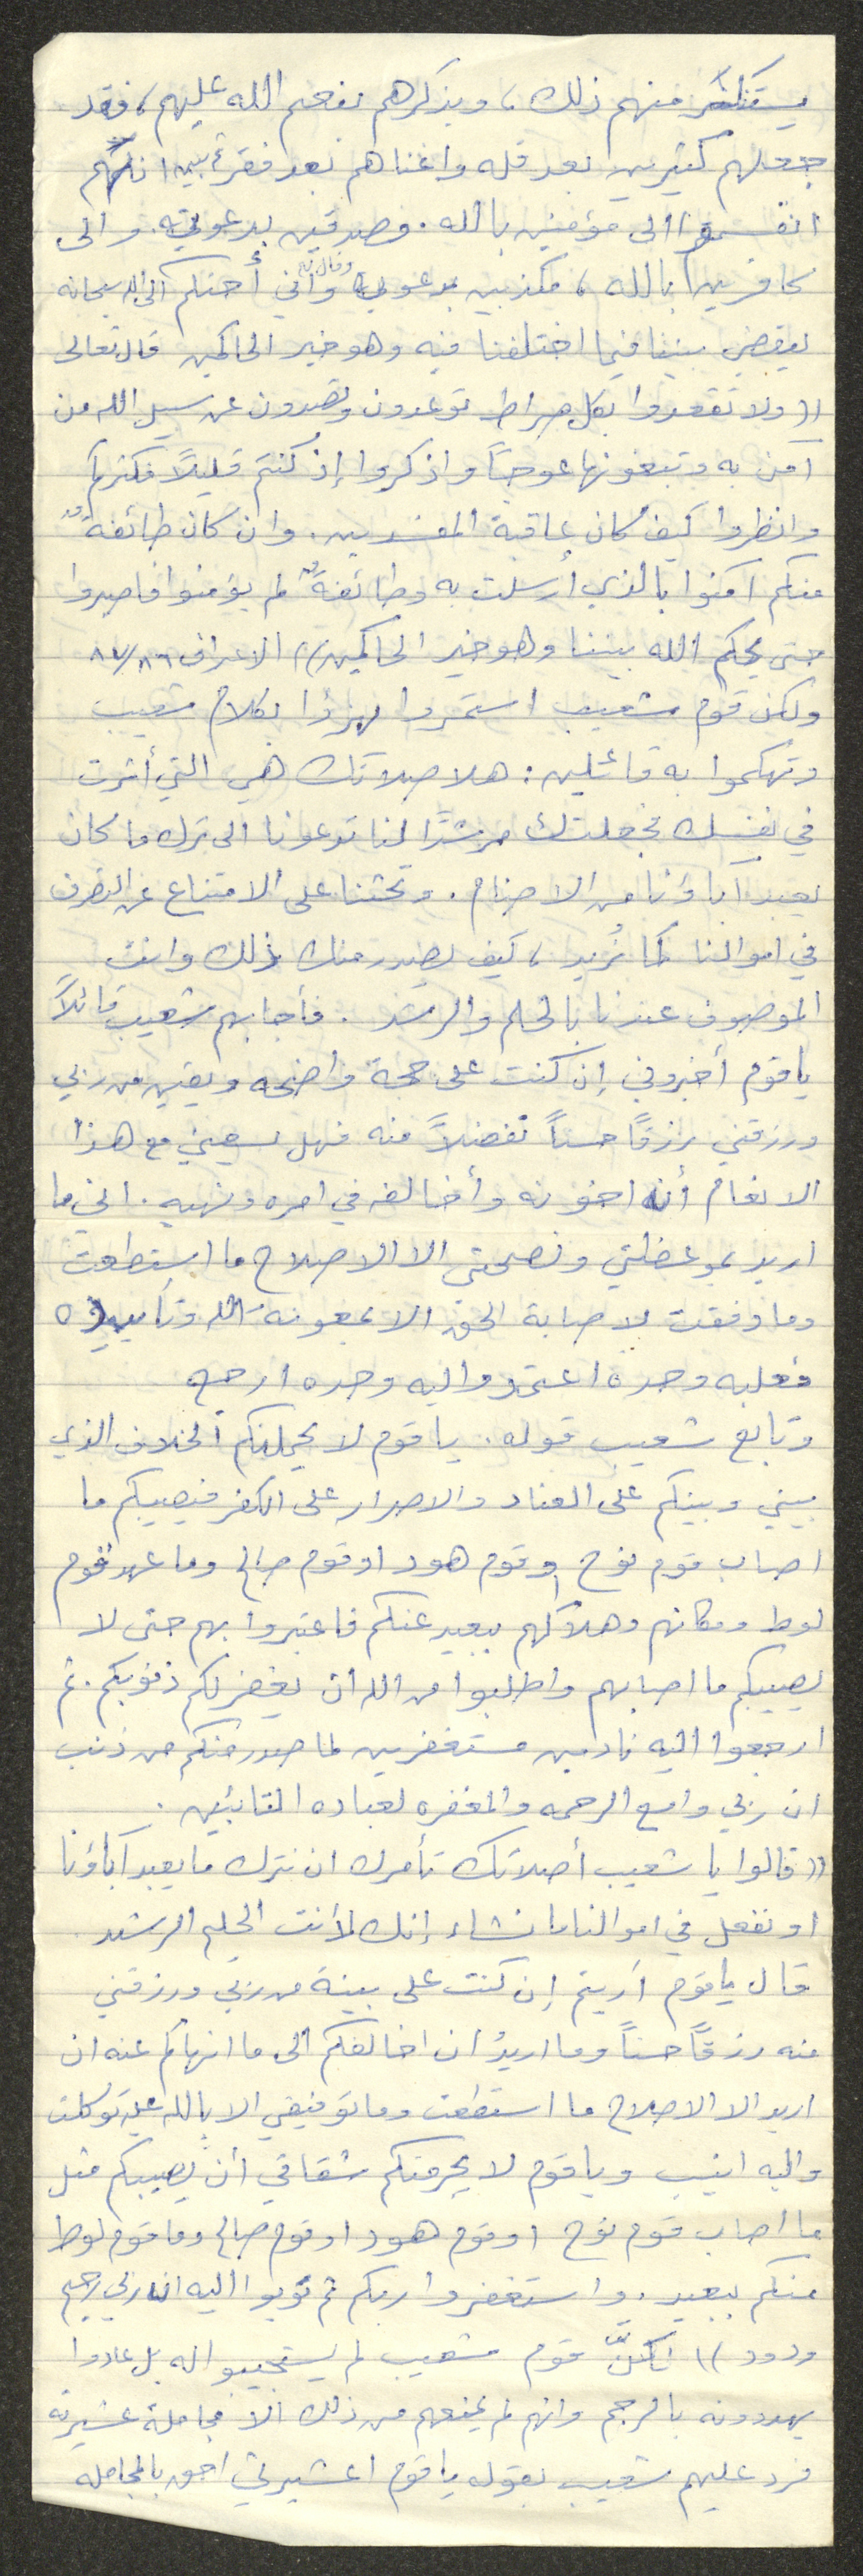 يستنكر منهم ذلك، ويذكرهم نعم الله عليهم، فقد
جعلهم كثيرين بعد قله واغناهم بعد فقر، بين انهم
انقسموا الى مؤمنين بالله. ومصدقين بدعوته. والى
كافرين بالله، مكذبين بدعوتي وقال لهم وأني أحتكم الى الله سبحانه
ليقضي بيننا فيما اختلفنا فيه وهو خير الحاكمين قال تعالى
((ولا تقعدوا بكل صراط توعدون وتصدون عن سبيل الله من
آمن به وتبغونها عوجاً واذكروا إذ كنتم قليلاً فكثركم
وانظروا كيف كان عاقبة المفسدين. وان كان طائفةٌ
منكم آمنوا بالذي أرسلت به وطائفةٌ لم يؤمنوا فاصبروا
حتى يحكم الله بيننا وهو خير الحاكمين)) الاعراف ٨٦/٨٧
ولكن قوم شعيب استمروا يهزؤا بكلام شعيب
وتهكموا به قائلين: هلا صلاتك هي التي أثرت
في نفسك فجعلتك مرشداً لنا تدعونا الى ترك ما كان
يعبد آباؤنا من الاصنام. وتحثنا على الامتناع عن التصرف
في اموالنا كما نُريد، كيف يصدر منك ذلك وانت
الموصوف عندنا بالحلم والرشد. فأجابهم شعيب قائلاً
ياقوم أخبروني إن كنت على حجة واضحه ويقين من ربي
ورزقني رزقاً حسناً تفضلاً منه فهل يسعني مع هذا
الانعام أن اخونه وأخالفه في امره ونهيه. اني ما
اريد بموعظتي ونصحتي الا الاصلاح ما استطعت
وما وفقت لاصابة الحق الا بمعونة الله وتأييده
فعليه وحده اعتمد واليه وحده ارجع
وتابع شعيب قوله. ياقوم لا يحملنكم الخلاف الذي
بيني وبينكم على العناد والاصرار على الكفر فيصيبكم ما
اصاب قوم نوح وقوم هود او قوم صالح وما عهد قوم
لوط ومكانهم وهلاكهم ببعيد عنكم فاعتبروا بهم حتى لا
يصيبكم ما اصابهم واطلبوا من الله ان يغفر لكم ذنوبكم. ثم
ارجعوا اليه نادمين مستغفرين لما صدر منكم من ذنب
ان ربي واسع الرحمه والمغفره لعباده التائبين.
((قالوا يا شعيب أصلاتك تأمرك ان نترك ما يعبد آباؤنا
او نفعل في اموالنا ما نشاء إنك لأنت الحليم الرشيد
قال ياقوم أريتم إن كنت على بينة من ربي ورزقني
منه رزقاً حسناً وما اريدُ ان اخالفكم الى ما انهاكم عنه ان
اريد الا الاصلاح ما استطعت وما توفيقي الا بالله عليه توكلت
واليه انيب وياقوم لا يجرمنكم شقاقي أن يصيبكم مثل
ما اصاب قوم نوح او قوم هود او قوم صالح وما قوم لوط
منكم ببعيد. واستغفروا ربكم ثم توبوا اليه ان ربي رحيم
ودود)) لكنَّ قوم شعيب لم يستجيبوا له بل عادوا
يهددونه بالرجم وانهم لم يمنعهم من ذلك الا مجاملة عشيرته
فرد عليهم شعيب بقوله ياقوم اعشيرتي احق بالمجامله